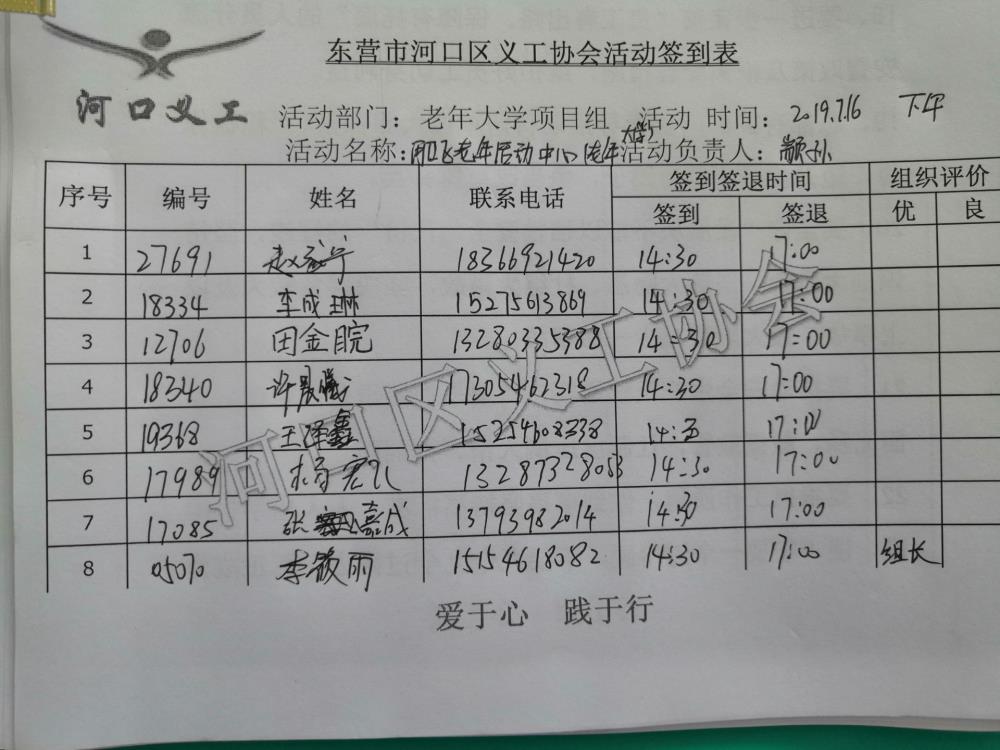 东营市河口区义工协会活动签到表
河口义工
活动部门：老年大学项目组 活动 时间：2019.7.16 下午
大学
活动名称：老年活动中心 活动负责人：
序号 编号 姓名 联系电话 签到签退时间 组织评价
签到 签退 优 良
1 27691 赵 宁 18366921420 14:30 17:00
2 18334 李成琳 15275613869 14:30 17:00
3 12706 田金皖 13280335388 14:30 17:00
4 18340 许晨曦 17305462318 14:30 17:00
5 19368 王泽鑫 15254608338 14:3 17:00
6 17989 杨宏 1328732805 14:30 17:00
7 17085 张 嘉成 13793982014 14:30 17:00
8 05070 李筱雨 15154618082 14:30 17:00 组长
河口区义工协会
爱于心 践于行